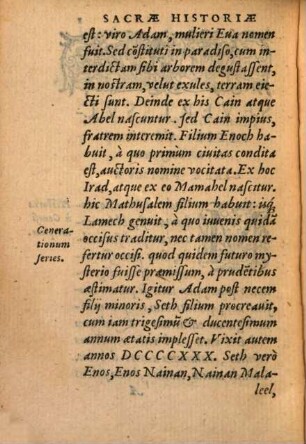 SACRAE HISTORIAE
est: viro Adam, mulieri Eua nomen
fuit. Sed cōstituti in paradiso, cum in-
terdictam sibi arborem degustassent,
in nostram, velut exules, terram eie-
cti sunt. Deinde ex his Cain atque
Abel nascuntur. sed Cain impius,
fratrem interemit. Filium Enoch ha-
buit, à quo primum ciuitas condita
est, auctoris nomine vocitata. Ex hoc
Irad, atque ex eo Mamahel nascitur.
hic Mathusalem filium habuit: isq́
Lamech genuit, à quo iuuenis quidā
occisus traditur, nec tamen nomen re-
fertur occisi. quod quidem futuro my-
sterio fuisse præmissum, à prudētibus
æstimatur. Igitur Adam post necem
filij minoris, Seth filium procreauit,
cum iam trigesimū & ducentesimum
annum ætatis implesset. Vixit autem
annos DCCCCXXX. Seth verò
Enos, Enos Nainan, Nainan Mala-
leel,
Genera-
tionum
series.